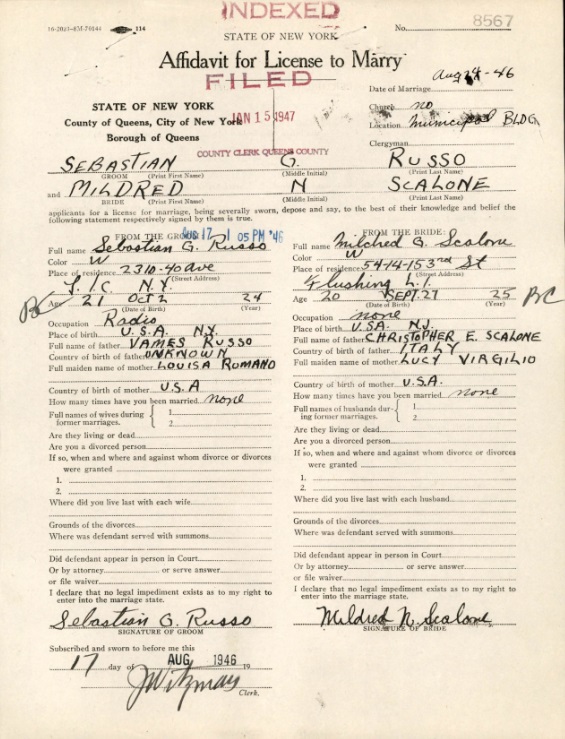 INDEXED
16-2021-8M-70144 114
No. 8567
STATE OF NEW YORK
Affidavit for License to Marry
FILED
JAN 15 1947
COUNTY CLERK QUEENS COUNTY
Date of Marriage Aug 24-46
Church no
Location Municipal BLDG
Clergyman
STATE OF NEW YORK
County of Queens, City of New York
Borough of Queens
SEBASTIAN G. RUSSO
GROOM (Print First Name) (Middle Initial) (Print Last Name)
and MILDRED N SCALONE
BRIDE (Print First Name) (Middle Initial) (Print Last Name)
applicants for a license for marriage, being severally sworn, depose and say, to the best of their knowledge and belief the
following statement respectively signed by them is true.
FROM THE GROOM:
AUG 17 1 05 PM '46
Full name Sebastian G. Russo
Color W
Place of residence 2310-40 Ave
(Street Address)
L.I.C. N.Y.
BC Age 21 OCT 2 24
(Date of Birth) (Year)
Occupation Radio
Place of birth U.S.A. N.Y.
Full name of father VAMES RUSSO
Country of birth of father UNKNOWN
Full maiden name of mother LOUISA ROMANO
Country of birth of mother U.S.A
How many times have you been married none
Full names of wives during former marriages. { 1
2
Are they living or dead
Are you a divorced person
If so, when and where and against whom divorce or divorces
were granted
1.
2.
Where did you live last with each wife
Grounds of the divorces
Where was defendant served with summons
Did defendant appear in person in Court
Or by attorney or serve answer
or file waiver
I declare that no legal impediment exists as to my right to
enter into the marriage state.
Sebastian G. Russo
SIGNATURE OF GROOM
Subscribed and sworn to before me this
17 day of AUG 1946 19
Clerk.
FROM THE BRIDE:
Full name Mildred G. Scalone
Color W
Place of residence 54-14-153rd St
(Street Address)
Flushing L.I.
Age 20 SEPT. 27 25 BC
(Date of Birth) (Year)
Occupation none
Place of birth U.S.A. N.J.
Full name of father CHRISTOPHER E. SCALONE
Country of birth of father ITALY
Full maiden name of mother LUCY VIRGILIO
Country of birth of mother U.S.A.
How many times have you been married none
Full names of husbands during former marriages. { 1
2
Are they living or dead
Are you a divorced person
If so, when and where and against whom divorce or divorces
were granted
1.
2.
Where did you live last with each husband
Grounds of the divorces
Where was defendant served with summons
Did defendant appear in person in Court
Or by attorney or serve answer
or file waiver
I declare that no legal impediment exists as to my right to
enter into the marriage state.
Mildred N. Scalone
SIGNATURE OF BRIDE